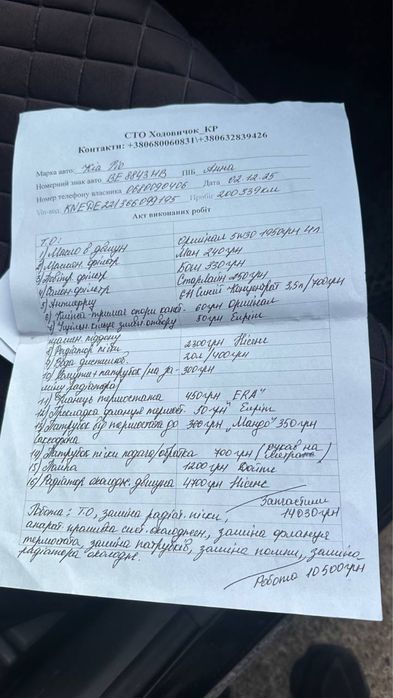 СТО Холодичок_КР
Контакти: +380680060831\+380632839426
Марка авто: Kia Rio
Номерний знак авто BE8843HB ПІБ Анна
Номер телефону власника 0680090406 Дата 02.12.25
Vin-код KNEDE221366099195 Пробіг 200339км
Акт виконаних робіт
Т.О:
1) Масло в двигун Оригінал 5w30 1950грн 4л
2) Маслян фільтр Ман 240грн
3) Повітр фільтр Бош 330грн
4) Салон фільтр Старлайн 250грн
5) Антифриз Синій Концентрат 3,5л/700грн
6) 60грн Оригінал
7) Ущільн кільце 50грн Ерінг
8) Радіатор пічки 2300грн Нісенс
9) Вода дистильов. 20л/400грн
10) Хомути+патрубок/на заміну радіатора) 300грн
11) Фланець термостата 450грн "ERA"
12) Прокладка фланця термост. 50грн" Ерінг
13) Патрубок від термостата до 300грн „Мандо" 350грн
14) Патрубок пічки подача/обратка 700грн (рукав на метраж)
15) Помпа 1200грн
16) Радіатор охолодж двигуна 4700грн Нісенс
Запчастини
14030грн
Робота: Т.О, заміна радіат. пічки,
апарат. промивка сист. охолоджен, заміна фланця
термостата, заміна патрубків, заміна помпи, заміна
радіатора охолодж.
Робота 10500грн